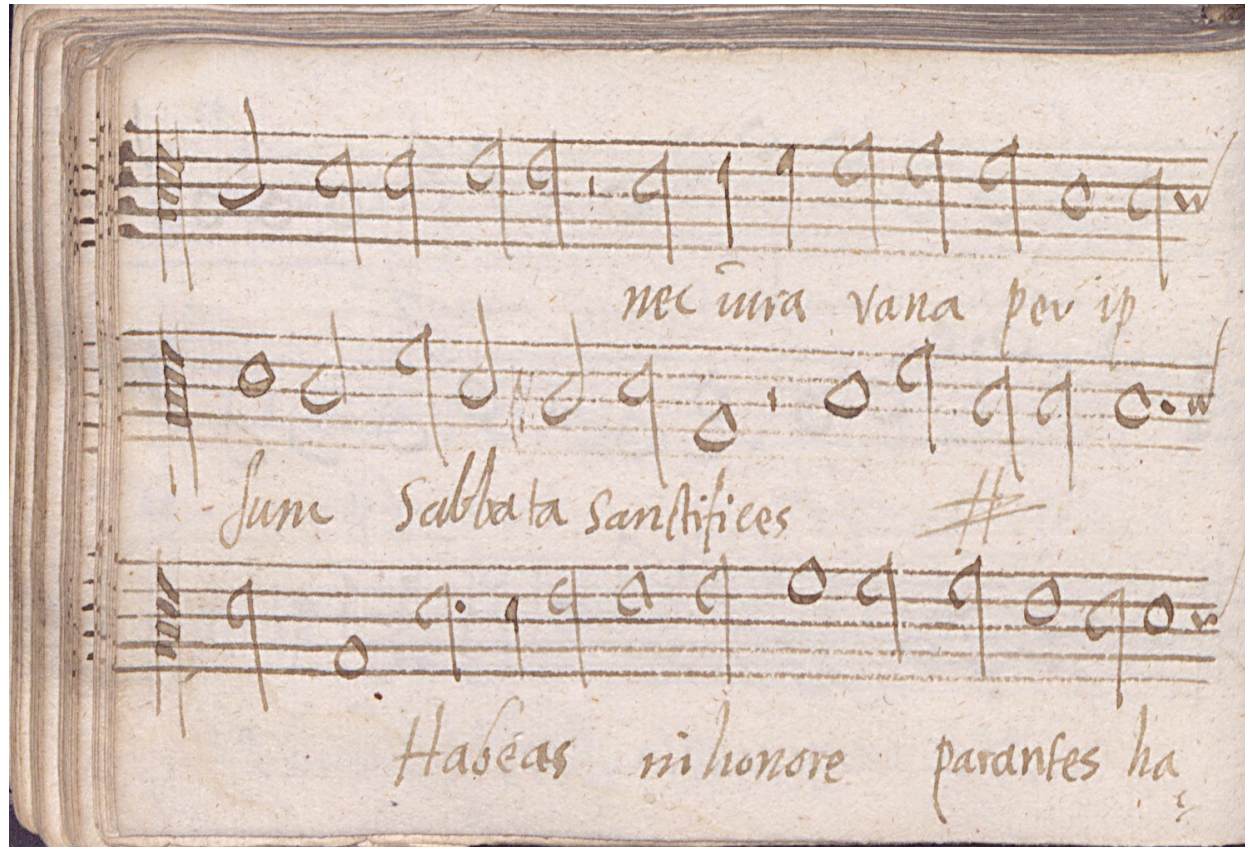 nec iura vana per ip
sum Sabbata Sanctifices
Habeas in honore parantes ha